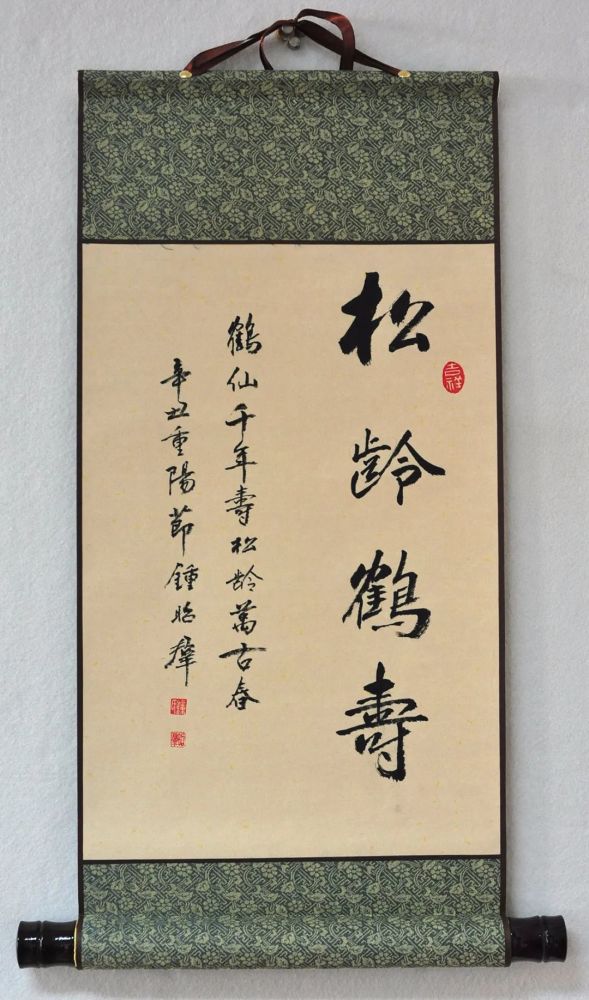 松齡鶴壽
吉祥
鶴仙千年壽松齡萬古春
辛丑重陽節鍾昭羣